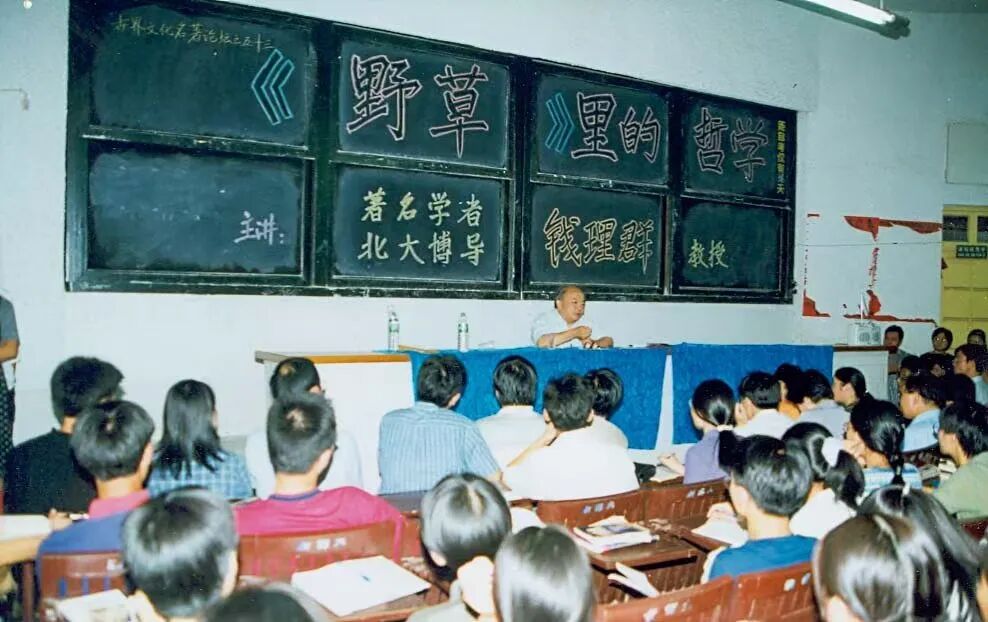 世界文化名著论坛之五十三
《野草》里的哲学
著名学者
主讲： 北大博导 钱理群 教授